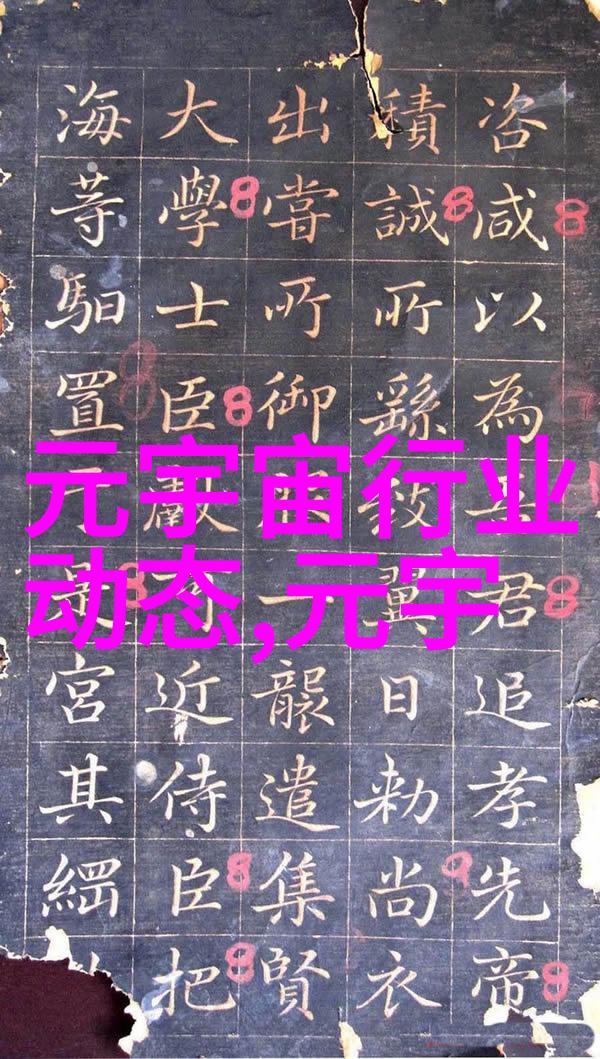 咨咸以為君追孝先帝
積誠所繇致翼日勅尚衣
出嘗所御一襲遣集賢
大學士臣近侍臣把
海等馹置宮其
元宇宙行业
动态,元宇